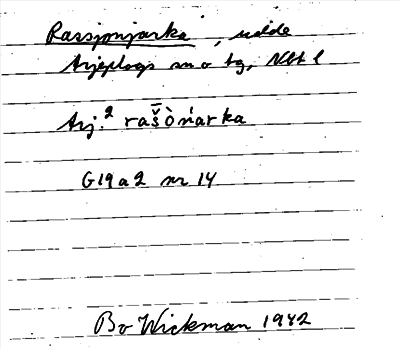 Rassjonjarka, udde
Arjeplogs sn o tg, Nbt l
Arj.² rašònarka
G19a2 nr 14
Bo Wickman 1942